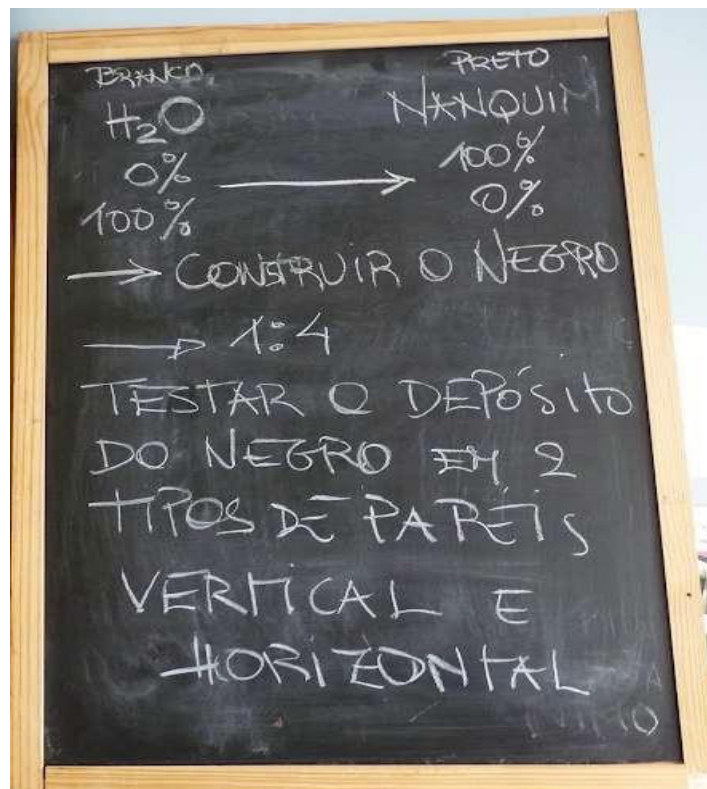 BRANCO PRETO
H₂O NANQUIM
0% → 100%
100% 0%
→ CONSTRUIR O NEGRO
→ 1:4
TESTAR O DEPÓSITO
DO NEGRO EM 2
TIPOS DE PAPÉIS
VERTICAL E
HORIZONTAL